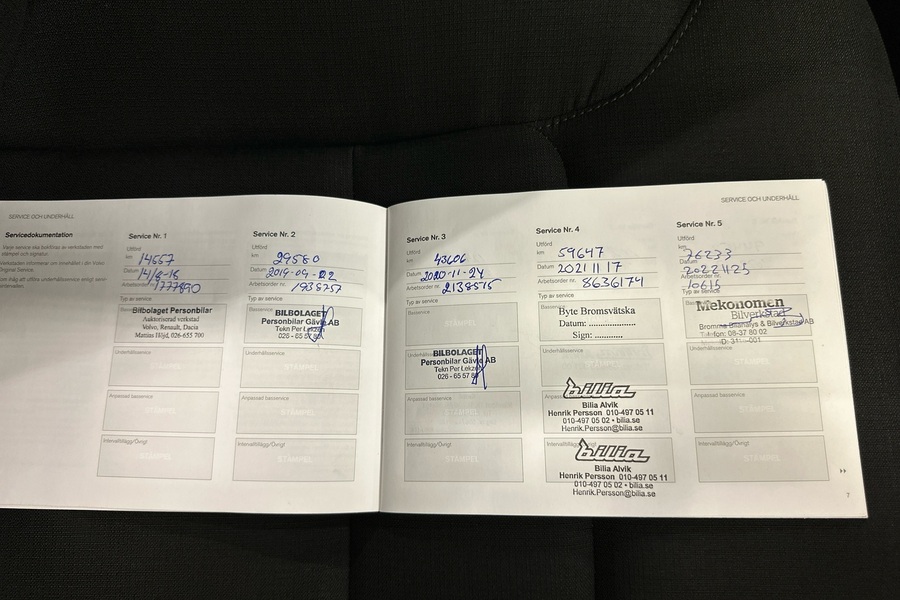 SERVICE OCH UNDERHÅLL
Servicedokumentation
Varje service ska bokföras av verkstaden med
stämpel och signatur.
Original Service.
Service Nr. 1
Utförd
km 14657
Datum 14/8-18
Arbetsorder nr. 1777890
Typ av service
Bilbolaget Personbilar
Auktoriserad verkstad
Volvo, Renault, Dacia
Mattias Höjd, 026-655 700
Underhållsservice
STÄMPEL
Anpassad basservice
STÄMPEL
Intervalltillägg/Övrigt
STÄMPEL
Service Nr. 2
Utförd
km 29580
Datum 2019-09-02
Arbetsorder nr. 1938757
Typ av service
Basservice
BILBOLAGET
Personbilar Gävle AB
Tekn Per Lekzén
026 - 65 57
Underhållsservice
STÄMPEL
Anpassad basservice
STÄMPEL
Intervalltillägg/Övrigt
STÄMPEL
Service Nr. 3
Utförd
km 43606
Datum 2020-11-24
Arbetsorder nr. 2138515
Typ av service
Basservice
STÄMPEL
Underhållsservice
BILBOLAGET
Personbilar Gävle AB
Tekn Per Lekzén
026 - 65 57
Anpassad basservice
STÄMPEL
Intervalltillägg/Övrigt
STÄMPEL
Service Nr. 4
Utförd
km 59647
Datum 2021 11 17
Arbetsorder nr. 8636174
Typ av service
Basservice
Byte Bromsvätska
Datum: ....................
Sign: ............
Underhållsservice
STÄMPEL
Anpassad basservice
bilia
Bilia Alvik
Henrik Persson 010-497 05 11
010-497 05 02 • bilia.se
Henrik.Persson@bilia.se
Intervalltillägg/Övrigt
bilia
Bilia Alvik
Henrik Persson 010-497 05 11
010-497 05 02 • bilia.se
Henrik.Persson@bilia.se
SERVICE OCH UNDERHÅLL
Service Nr. 5
Utförd
km 76233
Datum 20221125
Arbetsorder nr. 10615
Typ av service
Basservice
Mekonomen
Bilverkstad
Bromma Bilanalys & Bilverkstad AB
Telefon: 08-37 80 02
Underhållsservice
STÄMPEL
Anpassad basservice
STÄMPEL
Intervalltillägg/Övrigt
STÄMPEL
7